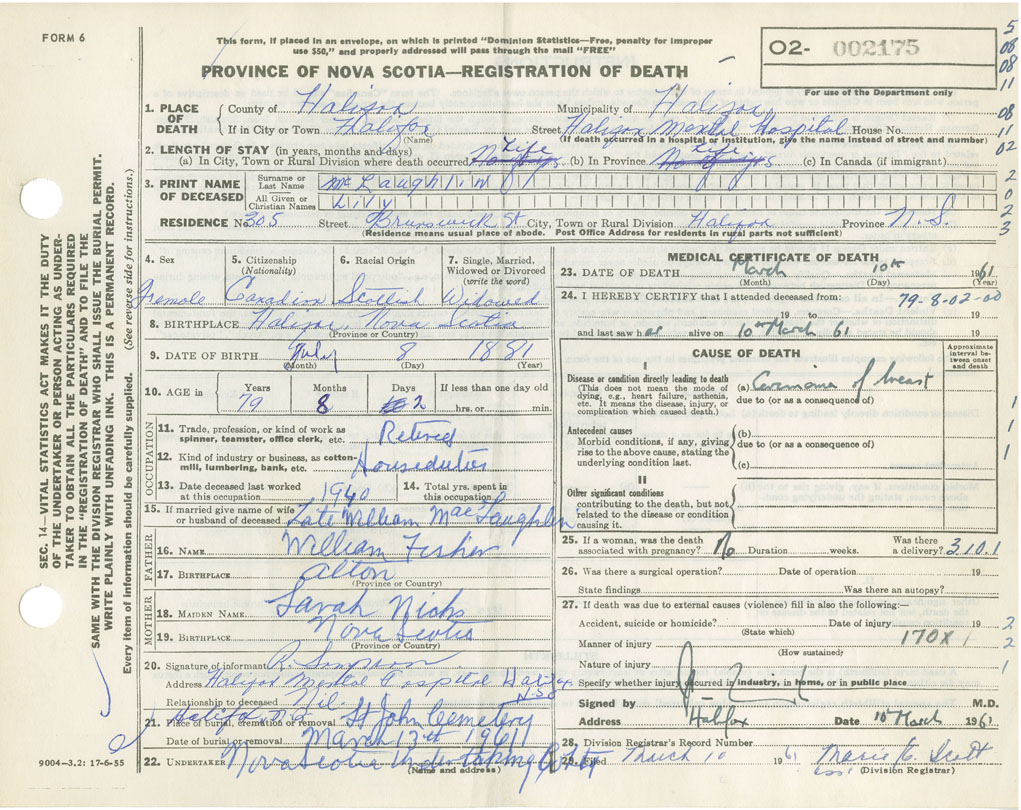 FORM 6
This form, if placed in an envelope, on which is printed "Dominion Statistics—Free, penalty for improper
use $50," and properly addressed will pass through the mail "FREE"
PROVINCE OF NOVA SCOTIA—REGISTRATION OF DEATH
O2- 002175
For use of the Department only
5
08
08
11
08
11
02
2
0
2
3
SEC. 14—VITAL STATISTICS ACT MAKES IT THE DUTY
OF THE UNDERTAKER OR PERSON ACTING AS UNDER-
TAKER TO OBTAIN ALL THE PARTICULARS REQUIRED
IN THE "REGISTRATION OF DEATH" AND TO FILE THE
SAME WITH THE DIVISION REGISTRAR WHO SHALL ISSUE THE BURIAL PERMIT.
WRITE PLAINLY WITH UNFADING INK. THIS IS A PERMANENT RECORD.
Every item of information should be carefully supplied. (See reverse side for instructions.)
1. PLACE OF DEATH County of Halifax Municipality of Halifax
If in City or Town Halifax Street Halifax Mental Hospital House No.
(Name) (If death occurred in a hospital or institution, give the name instead of street and number)
2. LENGTH OF STAY (in years, months and days)
(a) In City, Town or Rural Division where death occurred Life (b) In Province Life (c) In Canada (if immigrant)
3. PRINT NAME OF DECEASED
Surname or Last Name McLaughlin
All Given or Christian Names Lily
RESIDENCE No. 305 Street Brunswick St City, Town or Rural Division Halifax Province N.S.
(Residence means usual place of abode. Post Office Address for residents in rural parts not sufficient)
4. Sex 5. Citizenship (Nationality) 6. Racial Origin 7. Single, Married, Widowed or Divorced (write the word)
Female Canadian Scottish Widowed
8. BIRTHPLACE Halifax, Nova Scotia
(Province or Country)
9. DATE OF BIRTH July 8 1881
(Month) (Day) (Year)
10. AGE in Years Months Days If less than one day old
79 8 2 hrs. or min.
OCCUPATION
11. Trade, profession, or kind of work as spinner, teamster, office clerk, etc. Retired
12. Kind of industry or business, as cotton-mill, lumbering, bank, etc. Houseduties
13. Date deceased last worked at this occupation 1940 14. Total yrs. spent in this occupation
15. If married give name of wife or husband of deceased Late William MacLaughlin
FATHER
16. NAME William Fisher
17. BIRTHPLACE Alton
(Province or Country)
MOTHER
18. MAIDEN NAME Sarah
19. BIRTHPLACE Nova Scotia
(Province or Country)
20. Signature of informant R. Simpson
Address Halifax Mental Hospital Halifax N.S.
Relationship to deceased Nil.
21. Place of burial, cremation or removal Halifax N.S. St John Cemetery
Date of burial or removal March 13th 1961
22. UNDERTAKER Nova Scotia Undertaking
(Name and address)
9004—3.2: 17-6-55
MEDICAL CERTIFICATE OF DEATH
23. DATE OF DEATH March 10th 1961
(Month) (Day) (Year)
24. I HEREBY CERTIFY that I attended deceased from: 79-8-02-00
19 to 19
and last saw her alive on 10th March 61 19
CAUSE OF DEATH
Approximate interval between onset and death
I
Disease or condition directly leading to death (a) Carcinoma of breast
(This does not mean the mode of dying, e.g., heart failure, asthenia, etc. It means the disease, injury, or complication which caused death.) due to (or as a consequence of)
Antecedent causes (b)
Morbid conditions, if any, giving rise to the above cause, stating the underlying condition last. due to (or as a consequence of)
(c)
II
Other significant conditions
contributing to the death, but not related to the disease or condition causing it.
1
1
1
25. If a woman, was the death associated with pregnancy? No Duration weeks. Was there a delivery? 3.10.1
26. Was there a surgical operation? Date of operation 19
State findings Was there an autopsy?
27. If death was due to external causes (violence) fill in also the following:—
Accident, suicide or homicide? Date of injury 19 2
(State which)
Manner of injury 170X 1 2
(How sustained)
Nature of injury 1
Specify whether injury occurred in industry, in home, or in public place
Signed by M.D.
Address Halifax Date 10th March 1961
28. Division Registrar's Record Number
29. Filed March 10 1961 Marie E. Scott
(Division Registrar)